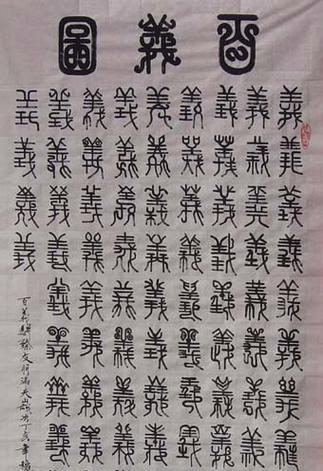 百義圖
義義義義義義義義
義義義義義義義義
義義義義義義義義
義義義義義義義義
義義義義義義義義
義義義義義義義義
義義義義義義義義
義義義義義義義義
義義義義
百義丁亥年